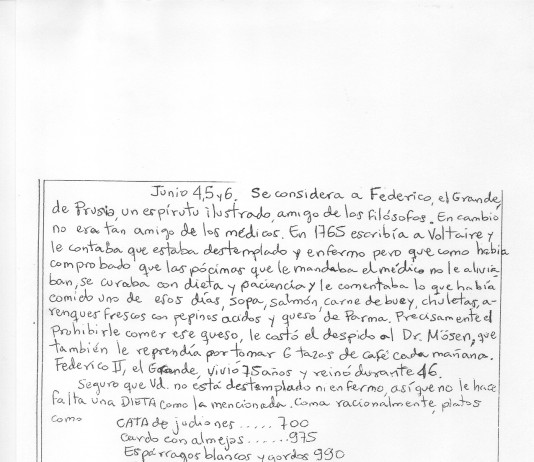 Junio 4,5 y 6. Se considera a Federico, el Grande,
de Prusia, un espírutu ilustrado, amigo de los filósofos. En cambio
no era tan amigo de los médicos. En 1765 escribía a Voltaire y
le contaba que estaba destemplado y enfermo pero que como había
comprobado que las pócimas que le mandaba el médico no le alivia-
ban, se curaba con dieta y paciencia y le comentaba lo que había
comido uno de esos días, sopa, salmón, carne de buey, chuletas, a-
renques frescos con pepinos acidos y queso de Parma. Precisamente el
prohibirle comer ese queso, le costó el despido al Dr. Mósen, que
también le reprendía por tomar 6 tazas de café cada mañana.
Federico II, el Grande, vivió 75 años y reinó durante 46.
Seguro que Vd. no está destemplado ni enfermo, así que no le hace
falta una DIETA como la mencionada. Coma racionalmente platos
como CATA de judiones ..... 700
Cardo con almejas ...... 975
Espárragos blancos y gordos 990